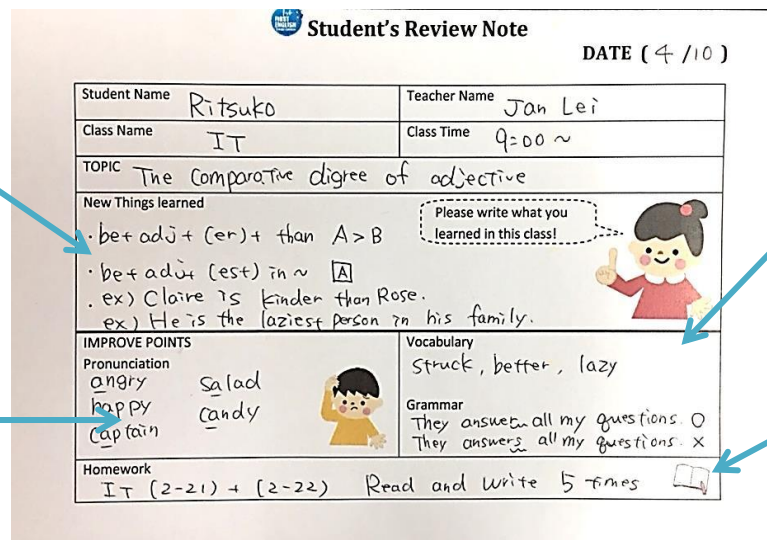 FIRST ENGLISH
Student's Review Note
DATE ( 4 /10 )
Student Name Ritsuko
Teacher Name Jan Lei
Class Name IT
Class Time 9:00 ~
TOPIC The comparative digree of adjective
New Things learned
Please write what you
learned in this class!
· be + adj + (er) + than A > B
· be + adj + (est) in ~ A
. ex) Claire is kinder than Rose.
ex) He is the laziest person in his family.
IMPROVE POINTS
Pronunciation
angry salad
happy candy
captain
Vocabulary
Struck, better, lazy
Grammar
They answer all my questions. O
They answers all my questions. ×
Homework
IT (2-21) + (2-22) Read and write 5 times